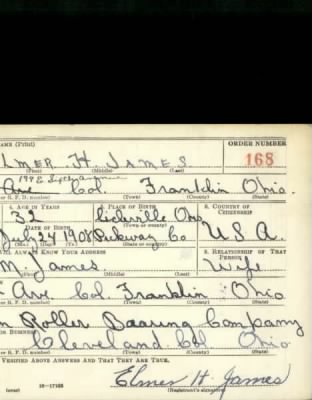 AME (Print) ORDER NUMBER
LMER H. JAMES 168
(First) (Middle) (Last)
Ave Col. Franklin Ohio.
R. F. D. number) (Town) (County) (State)
4. AGE IN YEARS 5. PLACE OF BIRTH 6. COUNTRY OF CITIZENSHIP
32
DATE OF BIRTH (Town or county)
24 1908 Pickway Co U.S.A.
(Day) (Yr.) (State or country)
ILL ALWAYS KNOW YOUR ADDRESS 8. RELATIONSHIP OF THAT PERSON
M James. Wife
(First) (Middle) (Last)
Ave Col. Franklin Ohio
R. F. D. number) (Town) (County) (State)
Roller Bearing Company
OR BUSINESS
Cleveland Ohio
or R. F. D. number) (Town) (County) (State)
VERIFIED ABOVE ANSWERS AND THAT THEY ARE TRUE.
Elmer H. James
(over) 16—17105 (Registrant's signature)